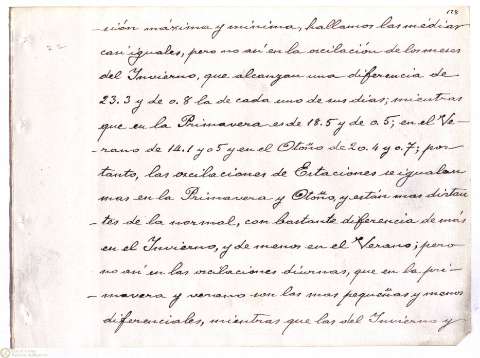 -sión máxima y minima, hallamos las médias
casi iguales, pero no asi en la oscilación de los meses
del Invierno, que alcanzan una diferencia de
23.3 y de 0.8 la de cada uno de sus dias; mientras
que en la Primavera es de 18.5 y de 0.5; en el Ve-
-rano de 14.1 y 05 y en el Otoño de 20.4 y 0.7; por
tanto, las oscilaciones de Estaciones se igualan
mas en la Primavera y Otoño, y están mas distan-
-tes de la normal, con bastante diferencia de más
en el Invierno, y de menos en el Verano; pero
no asi en las oscilaciones diurnas, que en la pri-
-mavera y verano son las mas pequeñas y menos
diferenciales, mientras que las del Invierno y